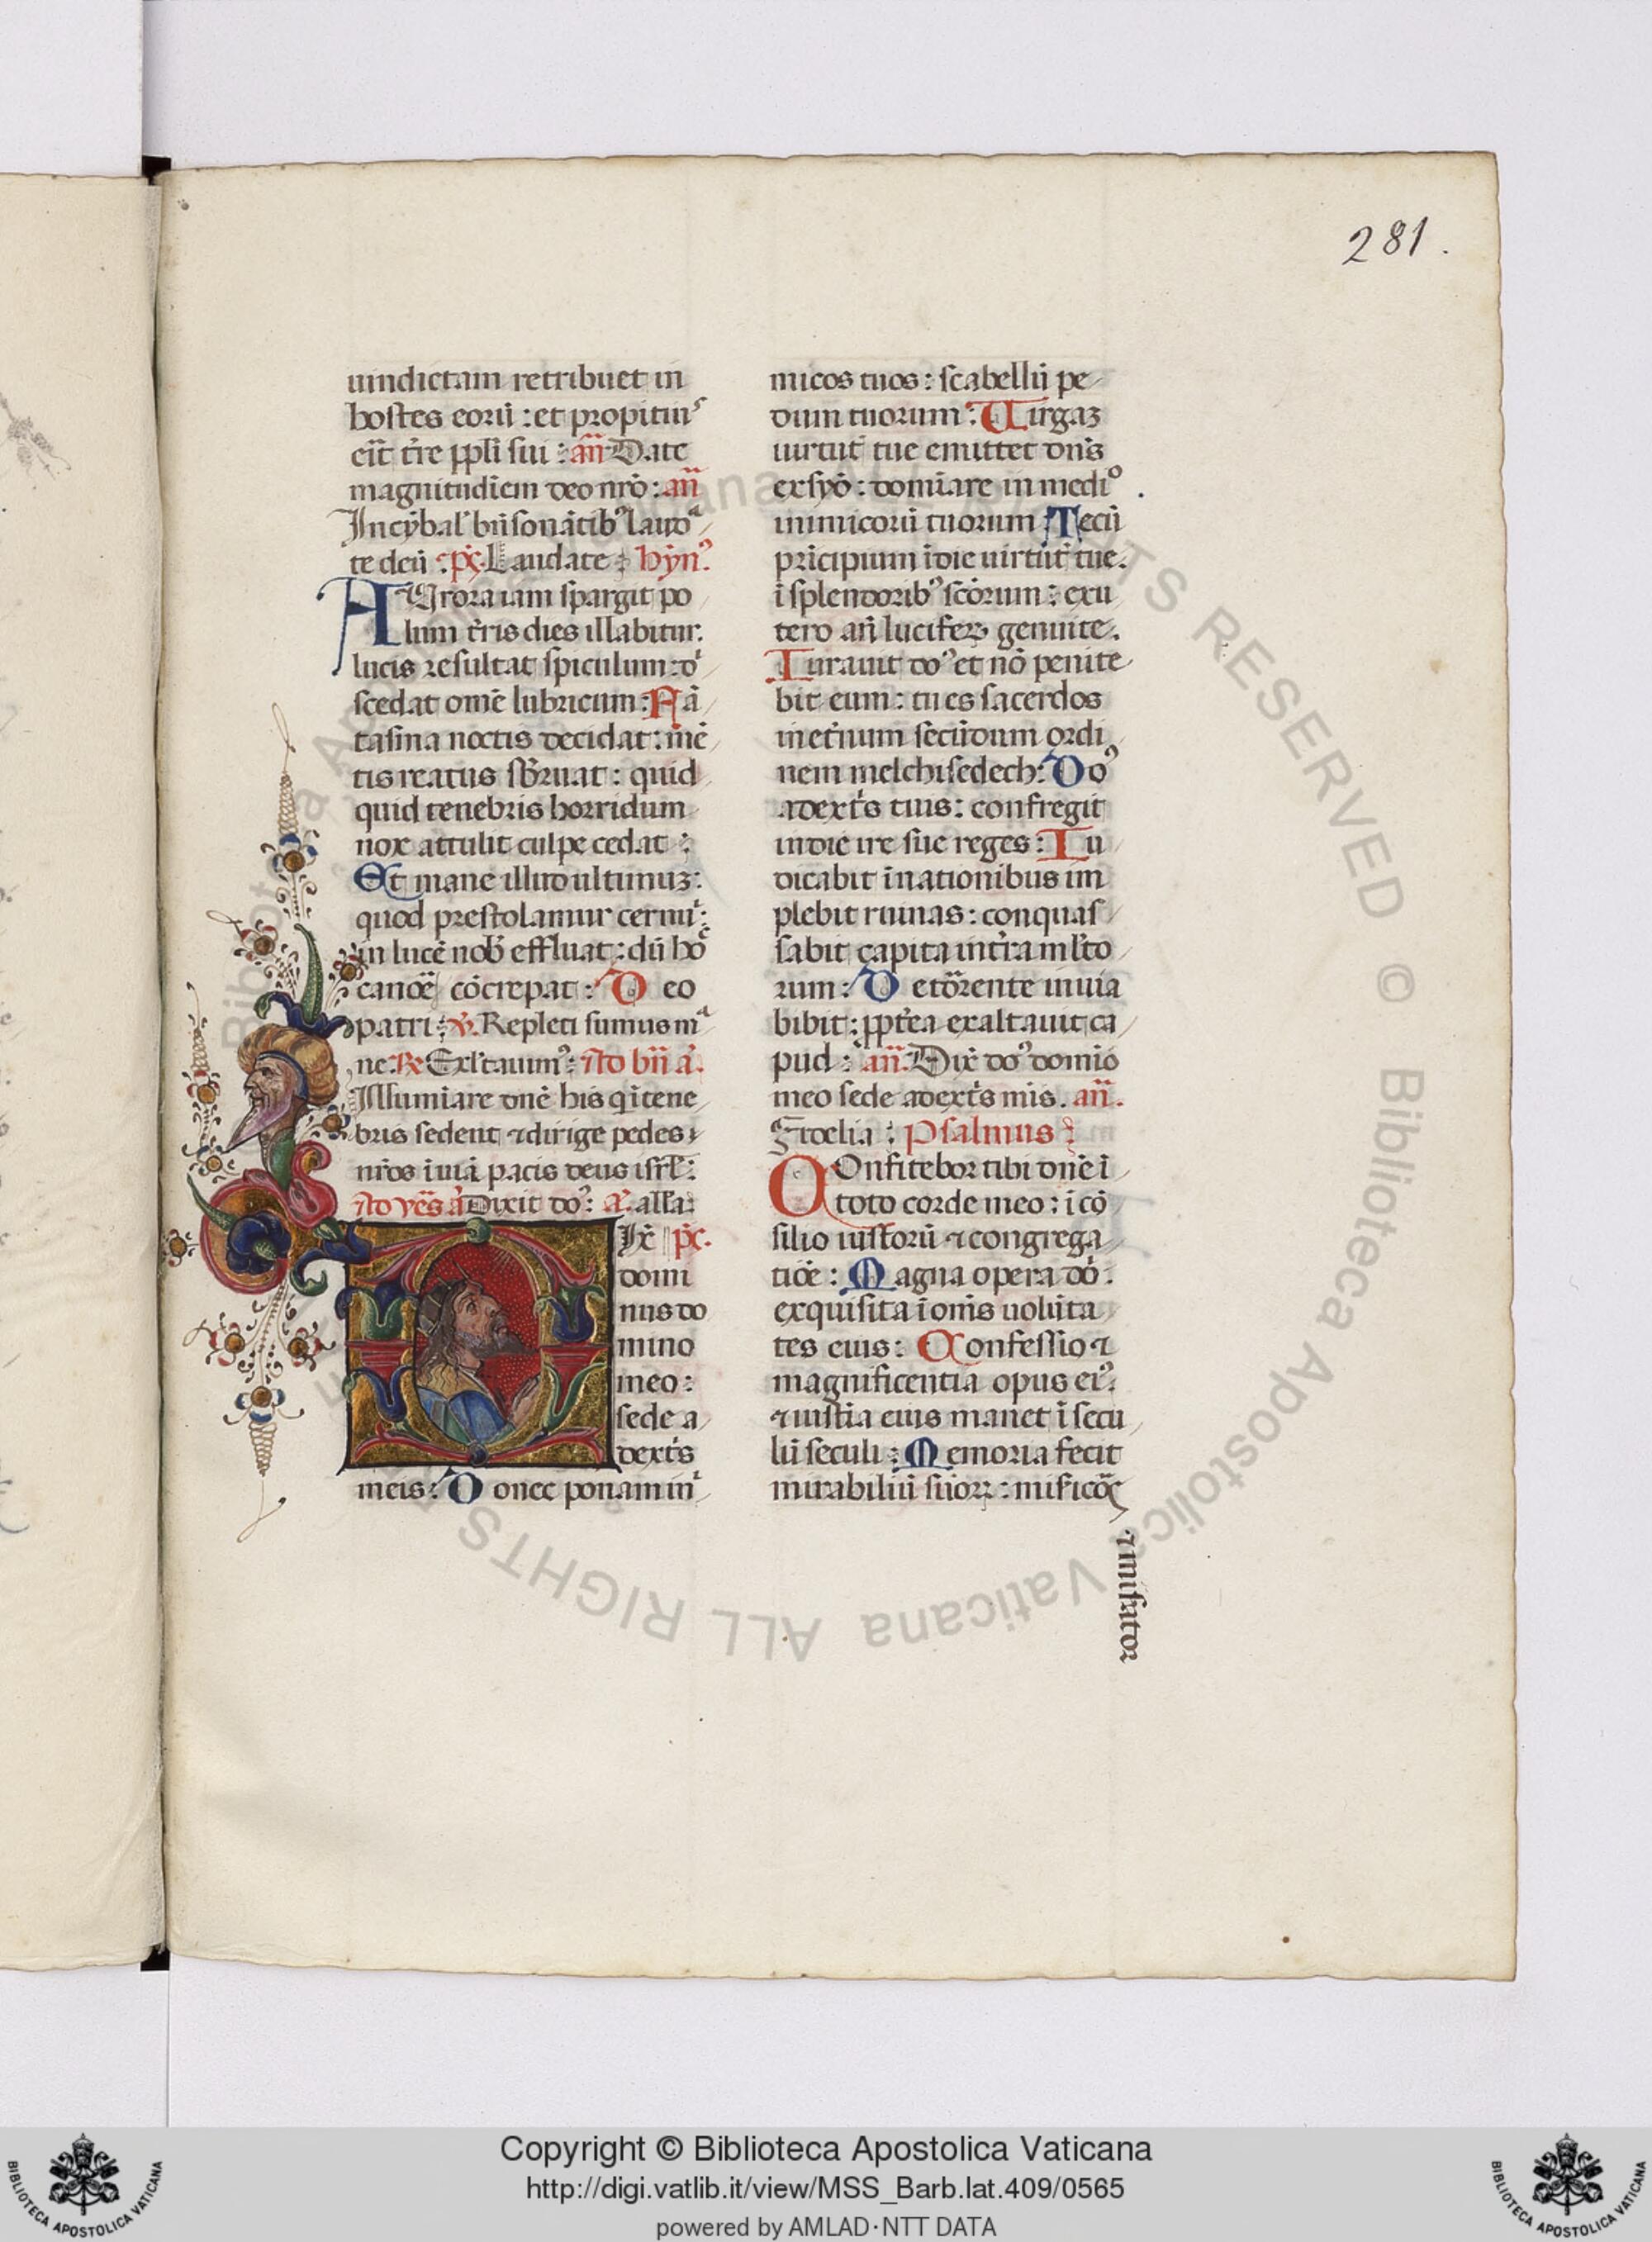 281.
uindictam retribuet in
hostes eorū : et propitiuꝰ
eīt t̄re ppl̄i sui : an̄ Date
magnitudiēm deo nrō : an̄
In cȳbal' bn̄sonātibꝰ lauda
te deū : ps̄. Laudate : hȳnꝰ
AUrora iam spargit po
lum t̄ris dies illabitur.
lucis resultat spiculum : di
scedat omē lubricum : Fā
tasma noctis decidat : mē
tis reatus sb̄ruat : quid
quid tenebris horridum
nox attulit culpe cedat :
Et mane illud ultimuꝫ :
quod prestolamur cernui :
in lucē nob̄ effluat : dū hoc
canoē cōcrepat : D eo
patri : v̄. Repleti sumus ma
ne. R Exl'tauimꝰ : Ad bn̄ a.
Illumīare dn̄e his qi tene
bris sedent ⁊ dirige pedes
nr̄os ī uiā pacis deus isrl̄ :
Ad ves̄ a Dixit do : a. alla.
Ix̄ ps̄.
domi
nus do
mino
meo :
sede a
dext̄s
meis : D onec ponam ini
micos tuos : scabellū pe
dum tuorum : Uirgaꝫ
uirtut̄ tue emittet dn̄s
ex syō : domīare in medio
inimicorū tuorum Tecū
prīcipium ī die uirtut̄ tue.
ī splendoribꝰ scōrum : ex u
tero an̄ luciferꝫ genui te.
Iurauit doꝰ et nō penite
bit eum : tu es sacerdos
in et̄num secūdum ordi
nem melchisedech : Doꝰ
a dext̄s tuis : confregit
in die ire sue reges : Iu
dicabit ī nationibus im
plebit ruinas : conquas
sabit capita in t̄ra ml̄to
rum : D e tōrente in uia
bibit : ppt̄ea exaltauit ca
pud : an̄. Dix̄ doꝰ domīo
meo sede a dext̄s mis. an̄.
Psalmus
COnfitebor tibi dn̄e ī
toto corde meo : ī cō
silio iustorū ⁊ congrega
tiōe : Magna opera do :
exquisita ī omīs uolūta
tes eius : Confessio ⁊
magnificentia opus eiꝰ :
⁊ iustīa eius manet ī secu
lū seculi : Memoria fecit
mirabiliū suorꝝ : mis̄icōs
⁊ mis̄ator
Copyright © Biblioteca Apostolica Vaticana
http://digi.vatlib.it/view/MSS_Barb.lat.409/0565
powered by AMLAD·NTT DATA
BIBLIOTECA APOSTOLICA VATICANA
BIBLIOTECA APOSTOLICA VATICANA
Biblioteca Apostolica Vaticana ALL RIGHTS RESERVED © Biblioteca Apostolica Vaticana ALL RIGHTS